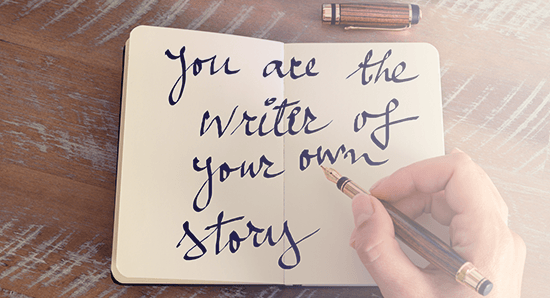 you are the
writer of
your own
story